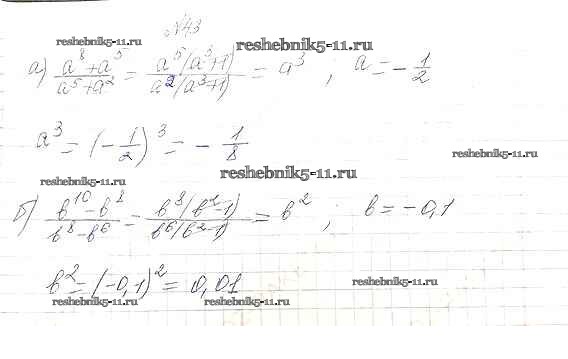 №43
reshebnik5-11.ru reshebnik5-11.ru
а) (a⁸+a⁵)/(a⁵+a²) = (a⁵(a³+1))/(a²(a³+1)) = a³ ; a = -1/2
a³ = (-1/2)³ = -1/8
reshebnik5-11.ru
reshebnik5-11.ru
reshebnik5-11.ru
б) (в¹⁰-в⁸)/(в⁸-в⁶) = (в⁸(в²-1))/(в⁶(в²-1)) = в² ; в = -0,1
в² = (-0,1)² = 0,01
reshebnik5-11.ru reshebnik5-11.ru reshebnik5-11.ru